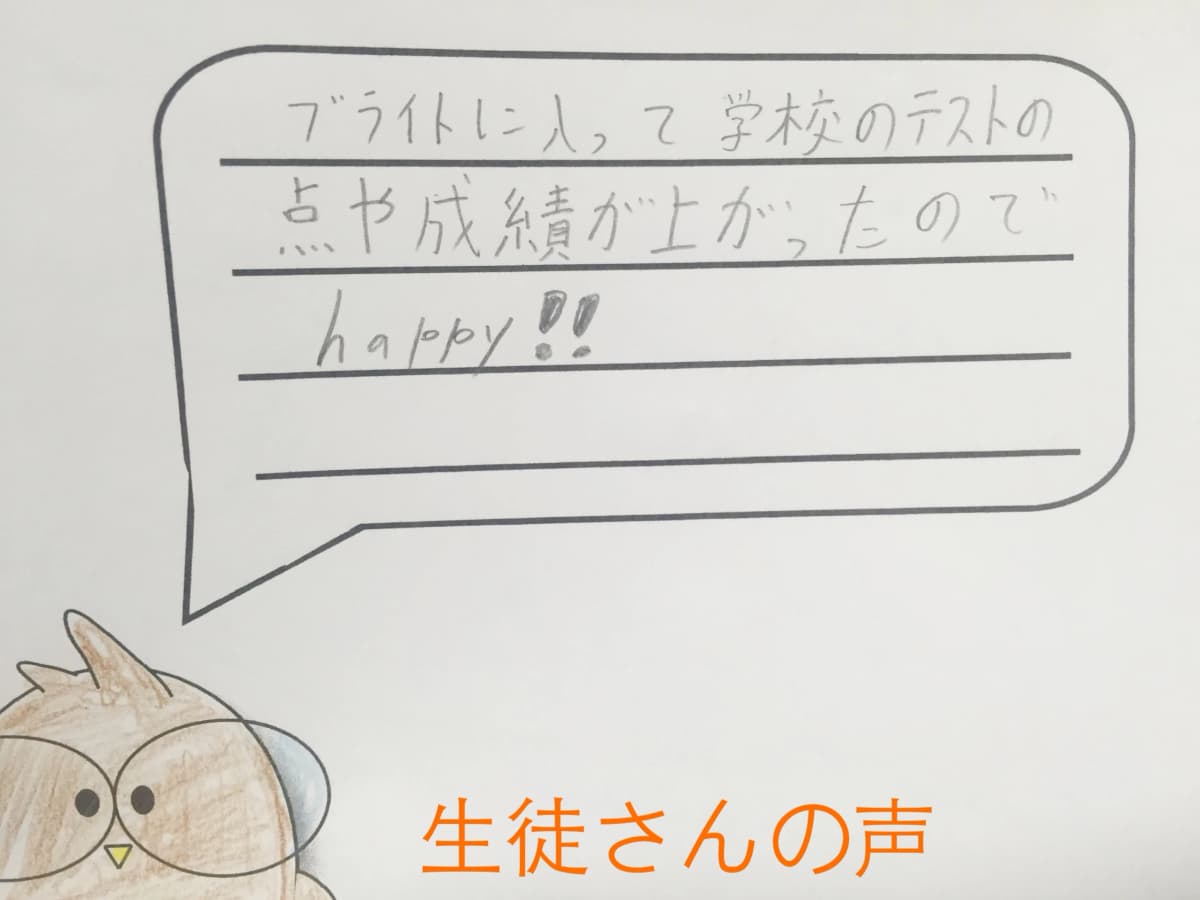 ブライトに入って学校のテストの
点や成績が上がったので
happy!!
生徒さんの声